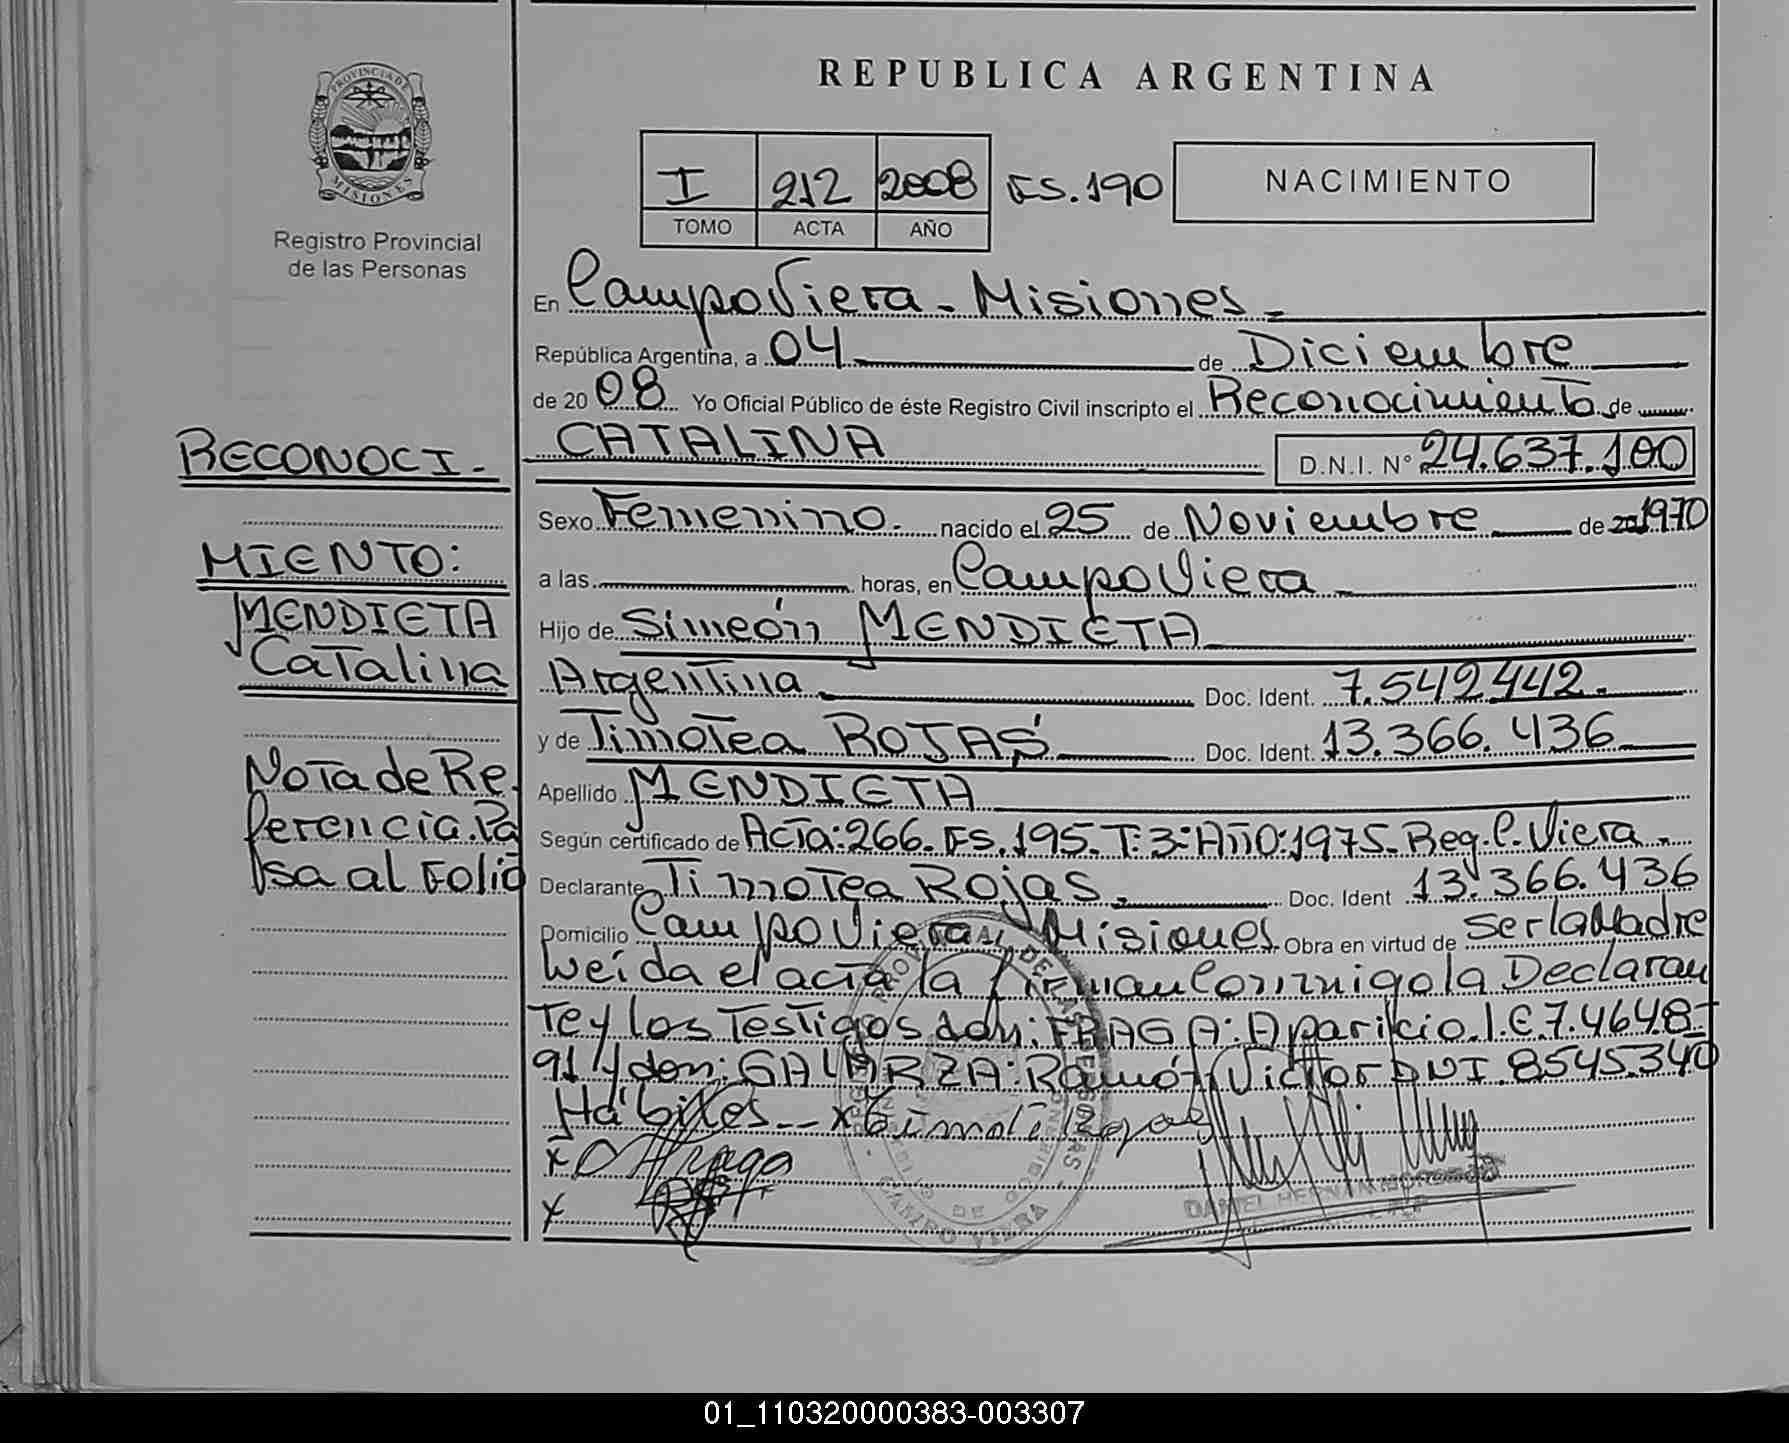 PROVINCIA DE
MISIONES
Registro Provincial
de las Personas
REPUBLICA ARGENTINA
I 212 2008 FS.190
TOMO ACTA AÑO
NACIMIENTO
En Campo Viera - Misiones
República Argentina, a 04 de Diciembre
de 20 08 Yo Oficial Público de éste Registro Civil inscripto el Reconocimiento de
CATALINA D.N.I. N° 24.637.100
Sexo Femenino. nacido el 25 de Noviembre de 1970
a las horas, en Campo Viera
Hijo de Simeón MENDIETA
Argentina Doc. Ident. 7.542.442.
y de Timotea ROJAS Doc. Ident. 13.366.436
Apellido MENDIETA
Según certificado de Acta: 266. FS. 195. T: 3: Año: 1975. Reg. C. Viera.
Declarante Timotea Rojas. Doc. Ident 13.366.436
Domicilio Campo Viera, Misiones Obra en virtud de ser la Madre
Leída el acta la firman Conmigo la Declaran
te y los Testigos don: FRAGA: Aparicio. L.E. 7.4648-
91 y don: GALARZA: Ramón Victor DNI. 8545.340
Hábiles
x
x Fraga
x
RECONOCI-
MIENTO:
MENDIETA
Catalina
Nota de Re
ferencia. Pa
sa al Folio
CAMPO VIERA
DANIEL HERNAN
01_110320000383-003307